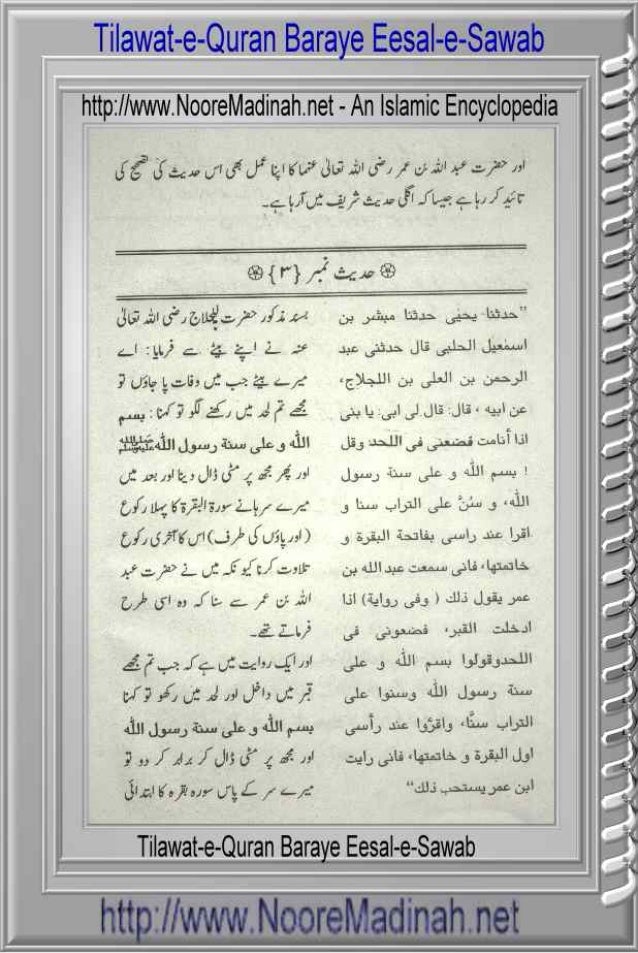 Tilawat-e-Quran Baraye Eesal-e-Sawab
http://www.NooreMadinah.net - An Islamic Encyclopedia
اور حضرت عبد اللہ بن عمر رضی اللہ تعالیٰ عنہما کا اپنا عمل بھی اس حدیث کی تصحیح کی
تائید کر رہا ہے جیسا کہ اگلی حدیث شریف میں آ رہا ہے۔
حدیث نمبر {۳}
"حدثنا یحیٰی حدثنا مبشر بن
اسمٰعیل الحلبی قال حدثنی عبد
الرحمن بن العلی بن اللجلاج،
عن ابیه ، قال: قال لی ابی: یا بنی
اذا أنامت فضعنی فی اللحد وقل
! بسم الله و علی سنة رسول
الله، و سُنَّ علی التراب سنا و
اقرا عند راسی بفاتحة البقرة و
خاتمتها، فانی سمعت عبد الله بن
عمر یقول ذلك ( وفی روایة) اذا
ادخلت القبر، فضعونی فی
اللحدوقولوا بسم الله و علی
سنة رسول الله وسنوا علی
التراب سنًّا، واقرٔوا عند رأسی
اول البقرة و خاتمتها، فانی رایت
ابن عمر یستحب ذلك"
بسند مذکور حضرت لجلاج رضی اللہ تعالیٰ
عنہ نے اپنے بیٹے سے فرمایا: اے
میرے بیٹے جب میں وفات پا جاؤں تو
مجھے تم لحد میں رکھنے لگو تو کہنا: بسم
الله و علی سنة رسول الله ﷺ
اور پھر مجھ پر مٹی ڈال دینا اور بعد میں
میرے سرہانے سورۃ البقرۃ کا پہلا رکوع
(اور پاؤں کی طرف) اس کا آخری رکوع
تلاوت کرنا کیونکہ میں نے حضرت عبد
اللہ بن عمر سے سنا کہ وہ اسی طرح
فرماتے تھے۔
اور ایک روایت میں ہے کہ جب تم مجھے
قبر میں داخل اور لحد میں رکھو تو کہنا
بسم الله و علی سنة رسول الله
اور مجھ پر مٹی ڈال کر برابر کر دو تو
میرے سر کے پاس سورہ بقرہ کا ابتدائی
Tilawat-e-Quran Baraye Eesal-e-Sawab
http://www.NooreMadinah.net